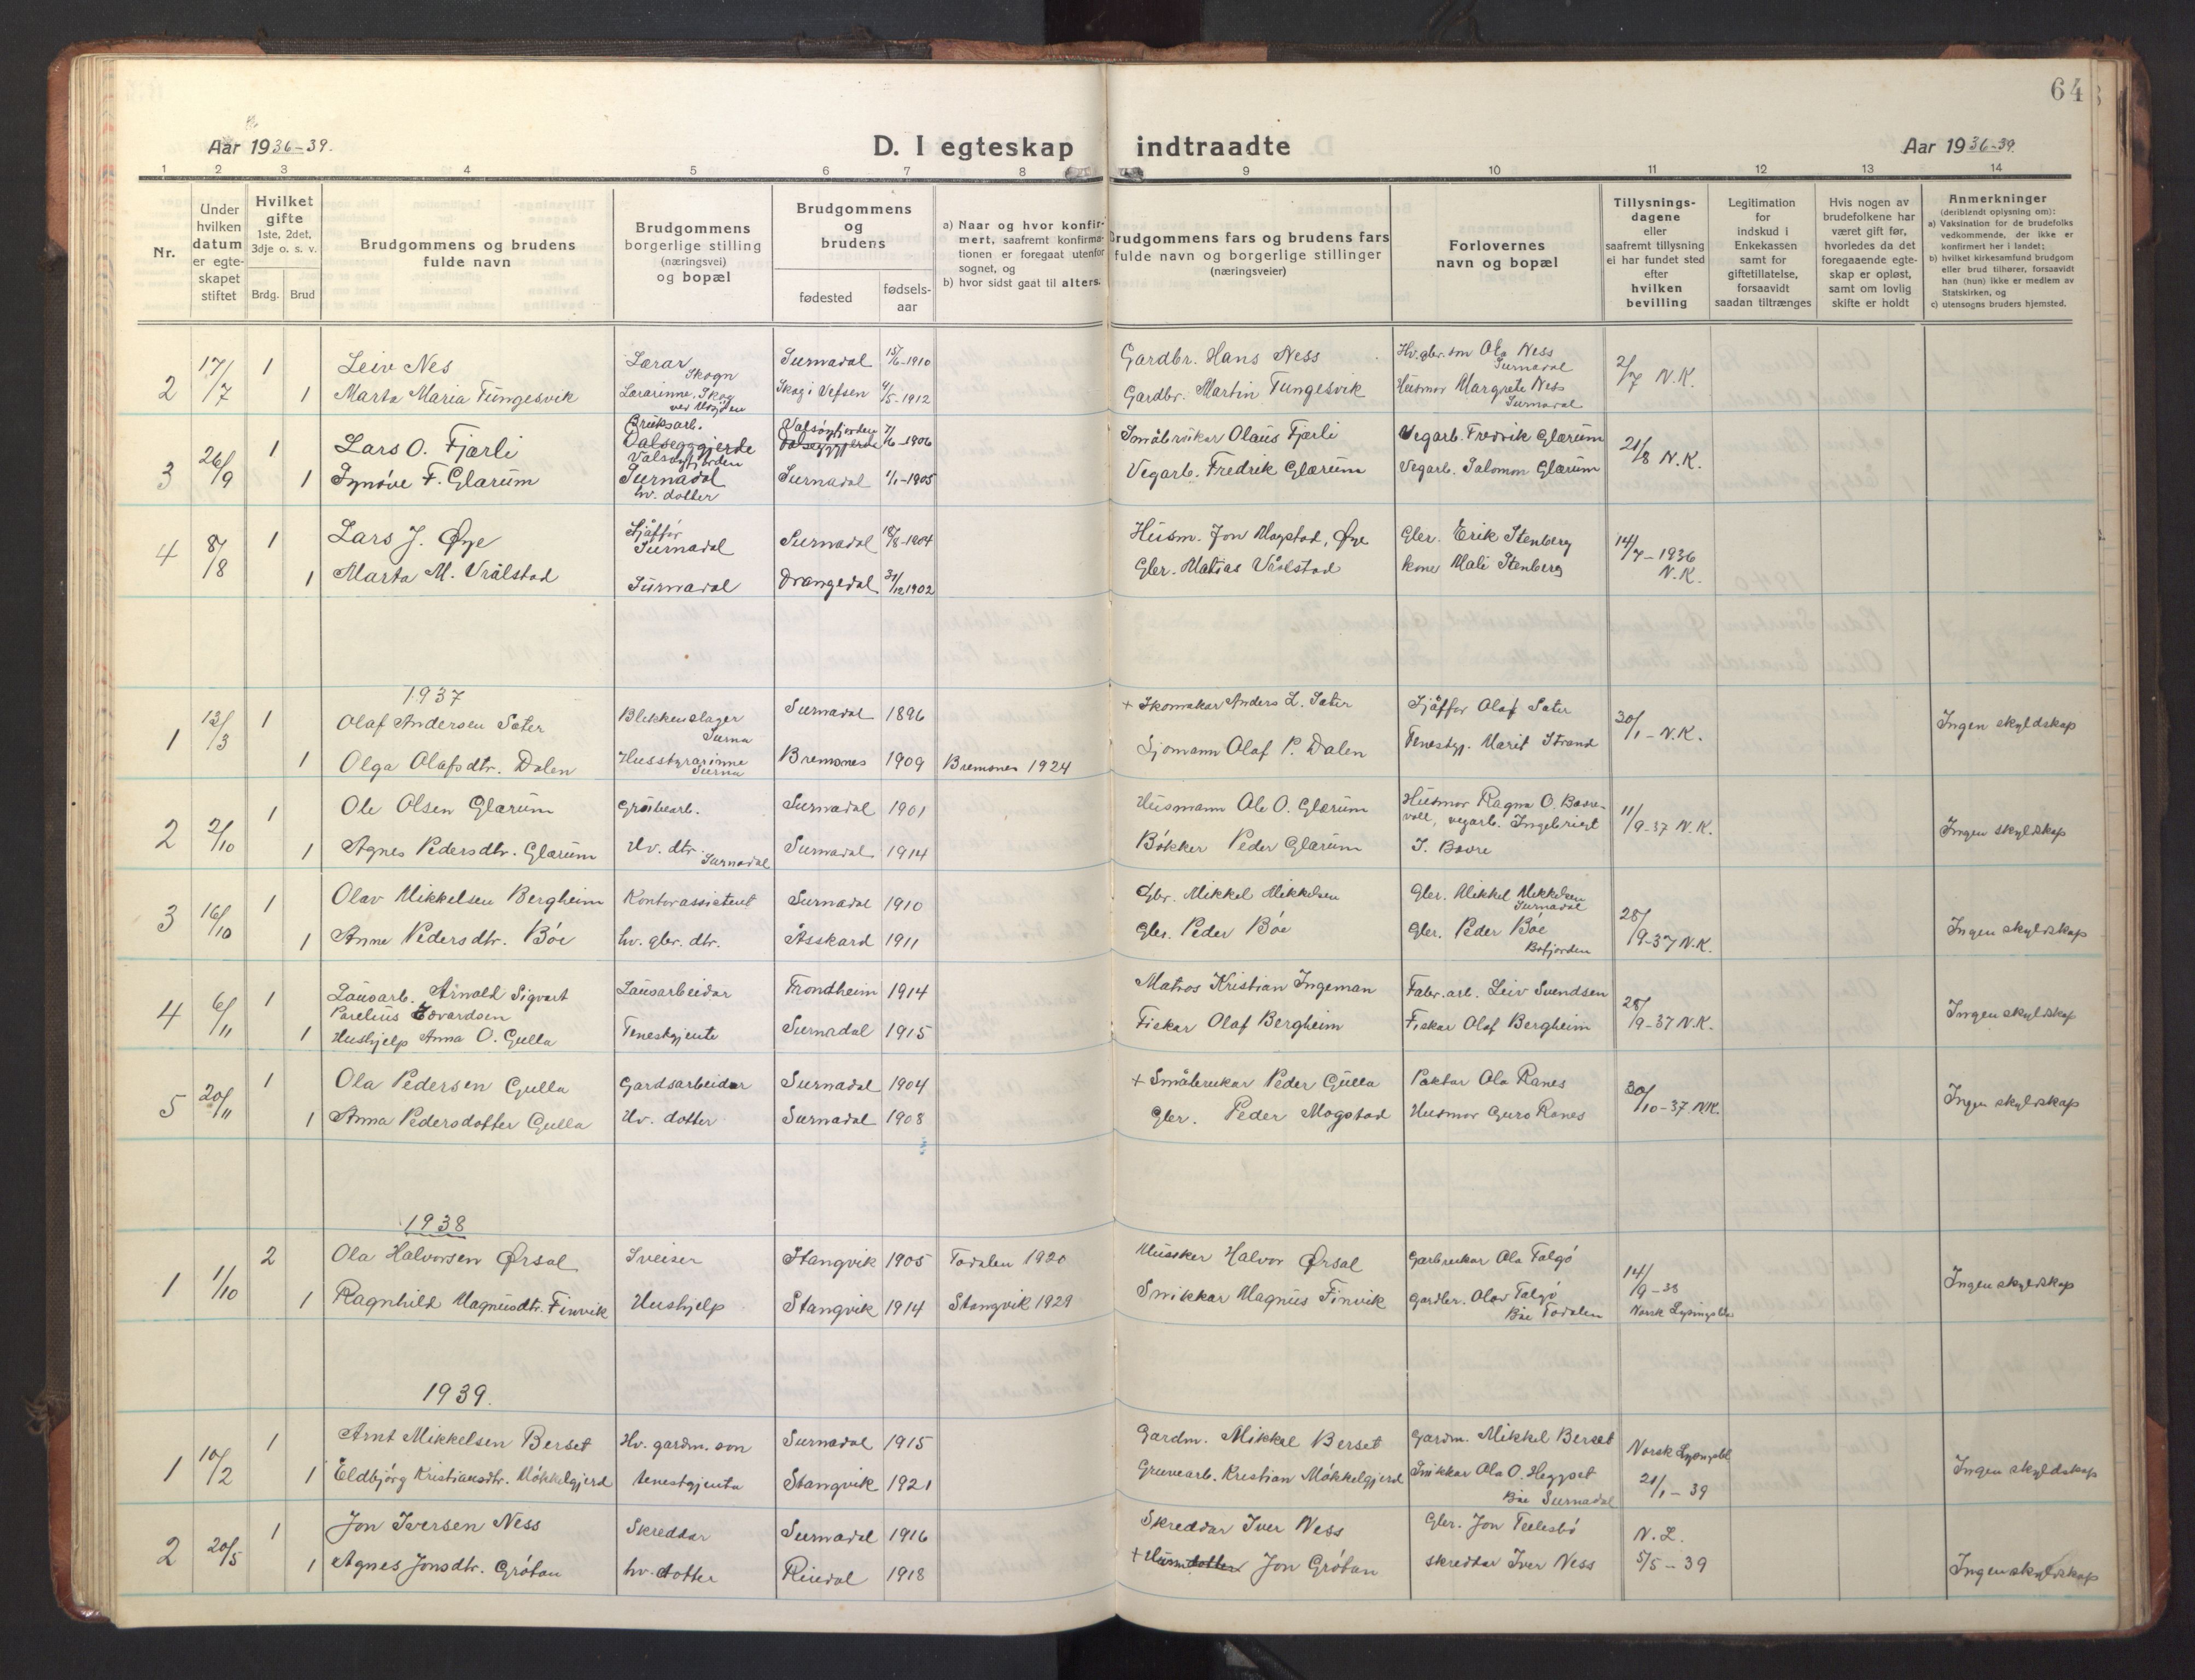 64
Aar 1936-39.
D. I egteskap indtraadte
Aar 1936-39
1 2 3 4 5 6 7 8 9 10 11 12 13 14
Nr.
Under hvilken datum er egteskapet stiftet
Hvilket gifte 1ste, 2det, 3dje o. s. v.
Brdg. Brud
Brudgommens og brudens fulde navn
Brudgommens borgerlige stilling (næringsvei) og bopæl
Brudgommens og brudens
fødested
fødselsaar
a) Naar og hvor konfirmert, saafremt konfirmationen er foregaat utenfor sognet, og
b) hvor sidst gaat til alters.
Brudgommens fars og brudens fars fulde navn og borgerlige stillinger (næringsveier)
Forlovernes navn og bopæl
Tillysningsdagene eller saafremt tillysning ei har fundet sted efter hvilken bevilling
Legitimation for indskud i Enkekassen samt for giftetillatelse, forsaavidt saadan tiltrænges
Hvis nogen av brudefolkene har været gift før, hvorledes da det foregaaende egteskap er opløst, samt om lovlig skifte er holdt
Anmerkninger (deriblendt oplysning om):
a) Vaksination for de brudefolks vedkommende, der ikke er konfirmert her i landet;
b) hvilket kirkesamfund brudgom eller brud tilhører, forsaavidt han (hun) ikke er medlem av Statskirken, og
c) utensogns bruders hjemsted.
2 17/7 1 Leiv Nes Lærar Skogn Surnadal 15/6-1910 Gardbr. Hans Ness Hv. gbr. søn Ola Ness Surnadal 2/7 N.K.
1 Marta Maria Tungesvik Lærarinne. Skog ved Mosjøen Skog i Vefsen 4/5-1912 Gardbr. Martin Tungesvik Husmor Margrete Ness Surnadal
3 26/9 1 Lars O. Fjærli Bruksarb. Valseggjerde Valsøyfjorden Valsøyfjorden Valseggjerde 7/6-1906 Småbrukar Olaus Fjærli Vegarb. Fredrik Glærum 21/8 N.K.
1 Synøve F. Glærum Surnadal hv. dotter Surnadal 1/1-1905 Vegarb. Fredrik Glærum Vegarb. Salomon Glærum
4 8/8 1 Lars J. Øye Sjåffør Surnadal Surnadal 18/8-1904 Husm. Jon Mogstad, Øye Gbr. Erik Stenberg 14/7-1936 N.K.
1 Marta M. Vrålstad Surnadal Drangedal 31/12 1902 Gbr. Matias Vrålstad kone Mali Stenberg
1937
1 13/3 1 Olaf Andersen Sæter Blikkenslager Surna Surnadal 1896 + Skomakar Anders L. Sæter Sjåffør Olaf Sæter 30/1-N.K. Ingen skyldskap
1 Olga Olafsdtr. Dalen Husstyrarinne Surna Bremsnes 1909 Bremsnes 1924 Sjømann Olaf P. Dalen Tenestgj. Marit Strand
2 2/10 1 Ole Olsen Glærum Grubearb. Surnadal 1901 Husmann Ole O. Glærum Husmor Ragna O. Bævrevoll, vegarb. Ingebrigt 11/9-37 N.K. Ingen skyldskap
1 Agnes Pedersdtr. Glærum Hv. dtr. Surnadal Surnadal 1914 Bøkker Peder Glærum I. Bævre
3 16/10 1 Olav Mikkelsen Bergheim Kontorassistent Surnadal 1910 Gbr. Mikkel Mikkelsen Gbr. Mikkel Mikkelsen Surnadal 28/9-37 N.K. Ingen skyldskap
1 Anne Pedersdtr. Bøe hv. gbr. dtr. Åsskard 1911 Gbr. Peder Bøe Gbr. Peder Bøe Bøfjorden
4 6/11 1 Lausarb. Arnald Sigvart Parelius Edvardsen Lausarbeidar Trondheim 1914 Matros Kristian Ingeman Fabr. arb. Leiv Svendsen 28/9-37 N.K. Ingen skyldskap
1 Hushjelp Anna O. Gulla Tenestgjente Surnadal 1915 Fiskar Olaf Bergheim Fiskar Olaf Bergheim
5 20/11 1 Ola Pedersen Gulla Gardsarbeidar Surnadal 1904 + Småbrukar Peder Gulla Paktar Ola Ranes 30/10-37 N.K. Ingen skyldskap
1 Anna Pedersdotter Gulla Hv. dotter Surnadal 1908 Gbr. Peder Mogstad Husmor Guro Ranes
1938
1 1/10 2 Ola Halvorsen Ørsal Sveiser Stangvik 1905 Todalen 1920 Musiker Halvor Ørsal Garbrukar Ola Talgø 14/9-38 Ingen skyldskap
1 Ragnhild Magnusdtr. Finvik Hushjelp Stangvik 1914 Stangvik 1929 Snikkar Magnus Finvik Gardbr. Olav Talgø Båe Todalen Norsk Lysingsbl.
1939.
1 10/2 1 Arnt Mikkelsen Berset Hv. gardm. søn Surnadal 1915 Gardm. Mikkel Berset Gardm. Mikkel Berset Norsk Lysingsbl. Ingen skyldskap
1 Eldbjørg Kristiansdtr. Møkkelgjerd tenestgjenta Stangvik 1921 Gruvearb. Kristian Møkkelgjerd Snikkar Ola O. Heggset Båe Surnadal 21/1-39
2 20/5 1 Jon Iversen Ness Skreddar Surnadal 1916 Skreddar Iver Ness Gbr. Jon Tellesbø N. L. Ingen skyldskap
1 Agnes Jonsdtr. Grøtan hv. dotter Rindal 1918 + Husm. Jon Grøtan skreddar Iver Ness 5/5-39